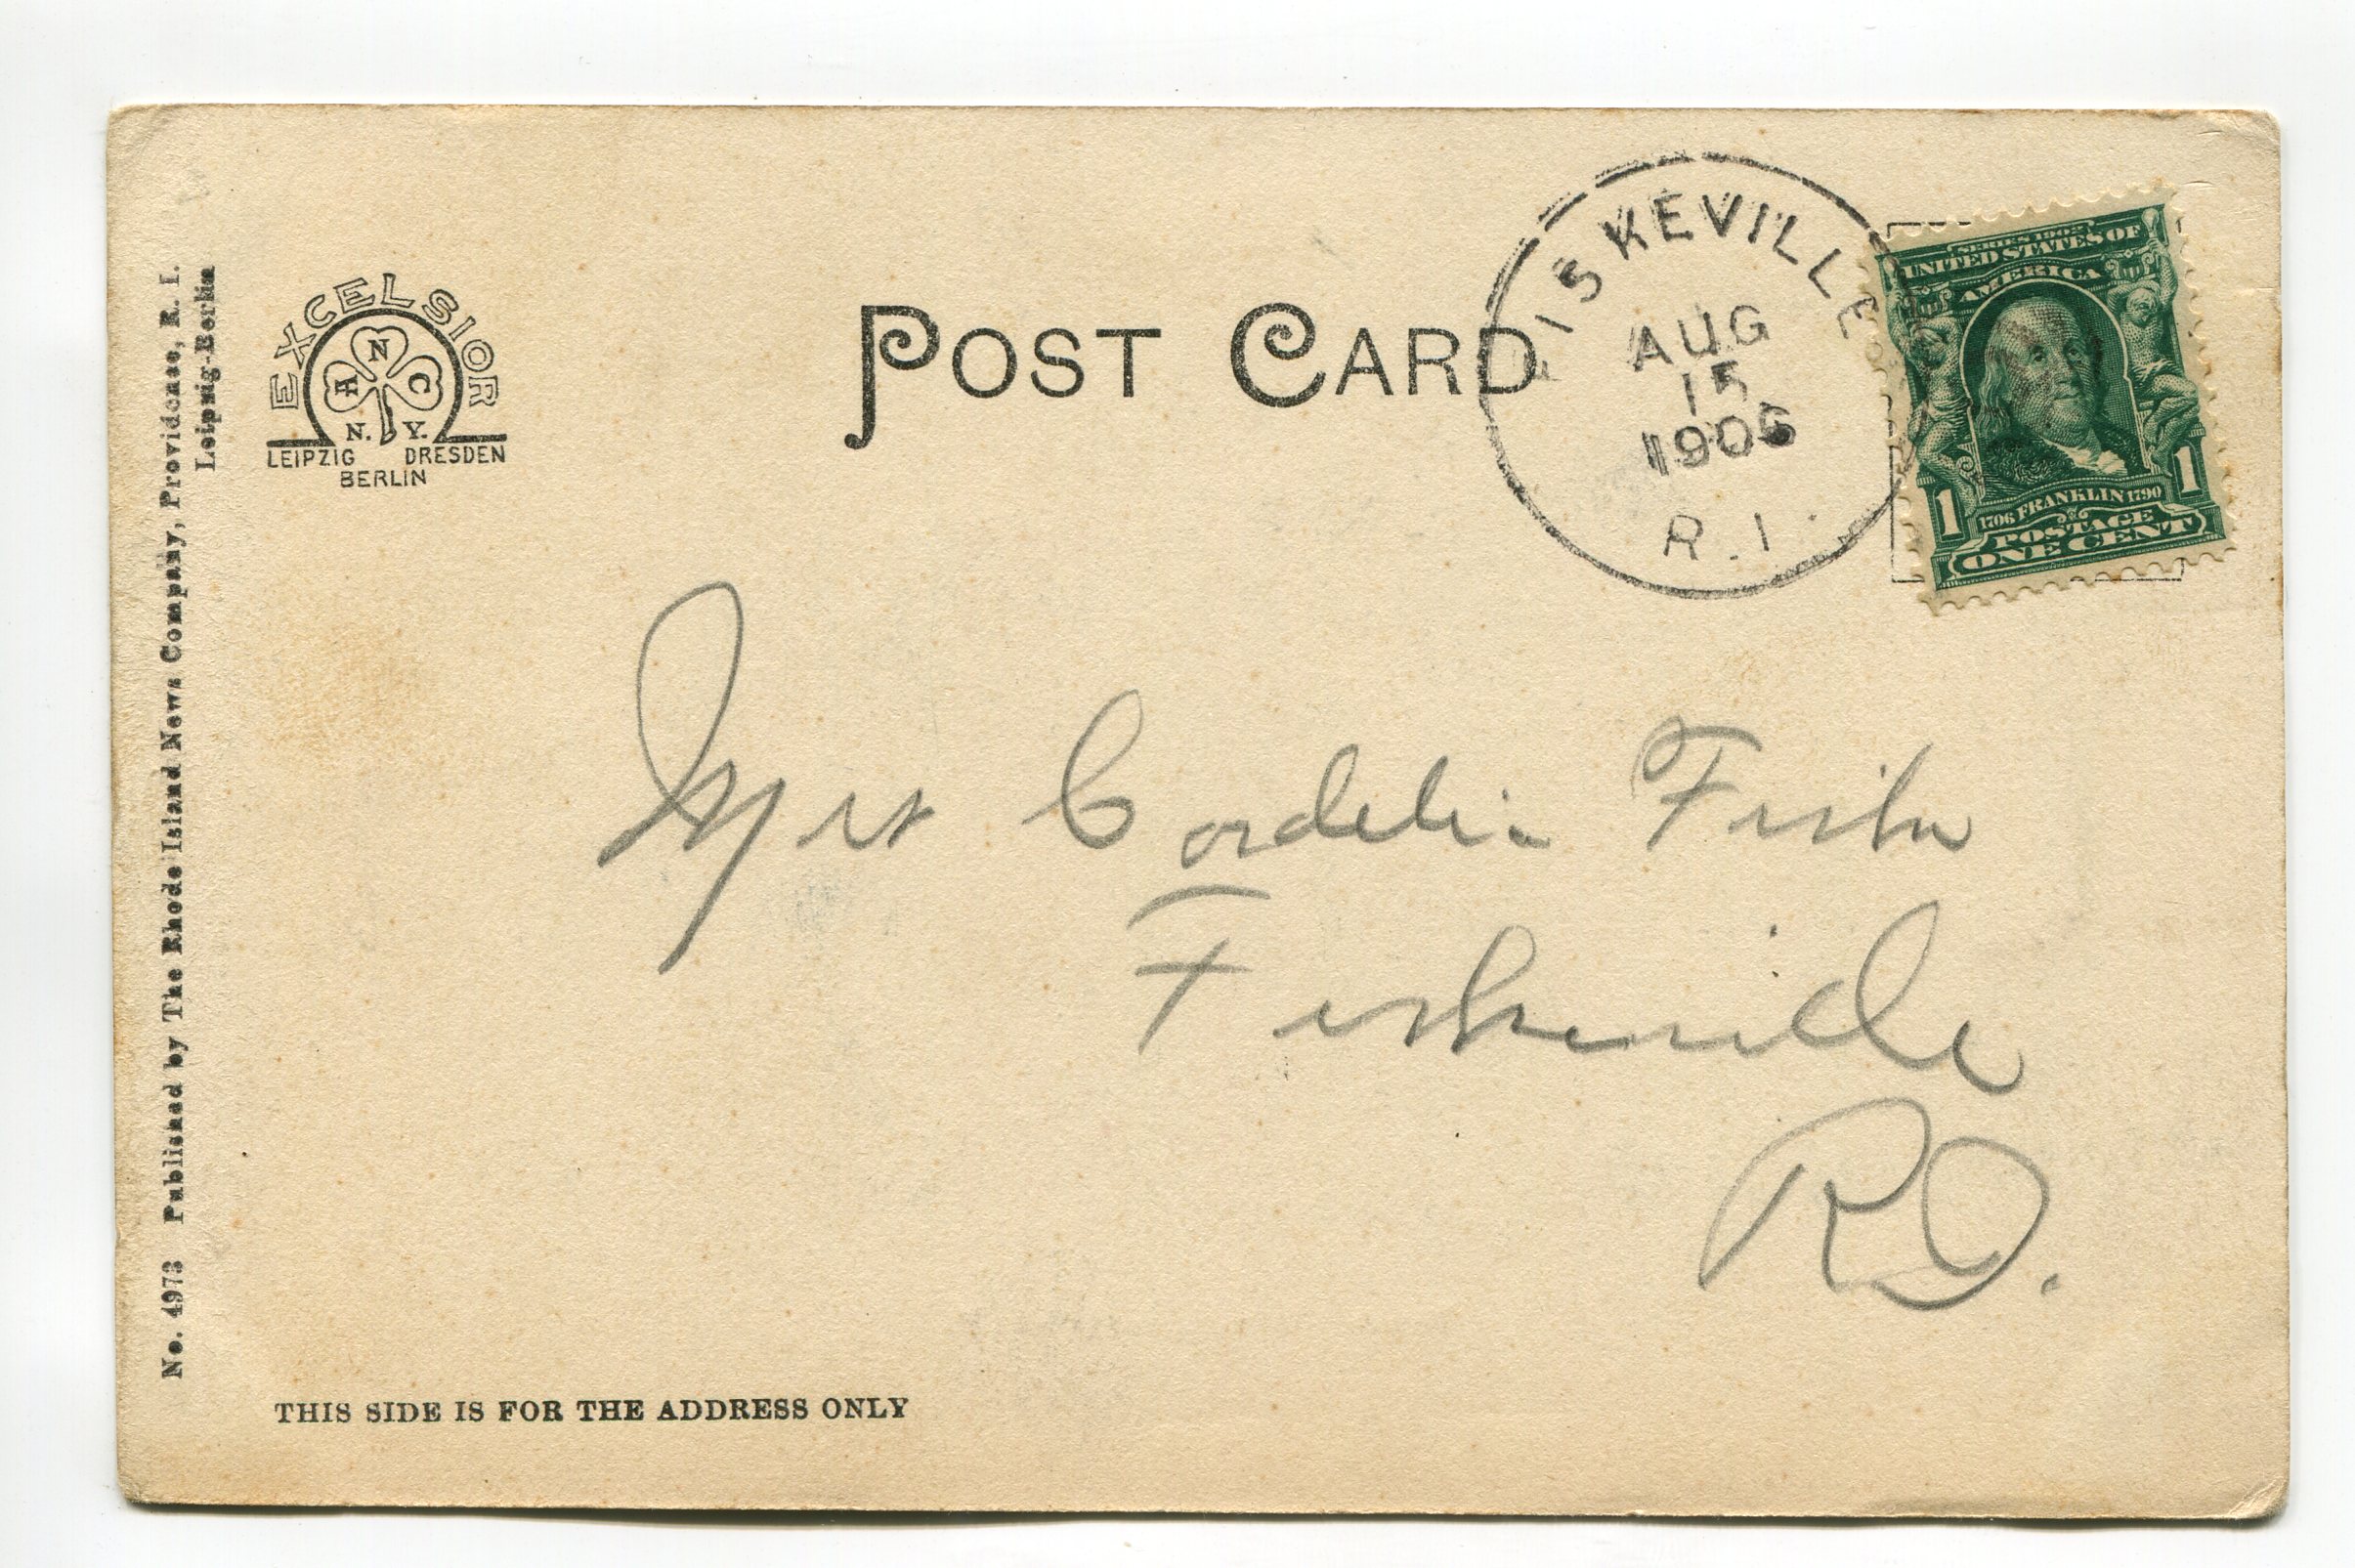 No. 4973 Published by The Rhode Island News Company, Providence, R. I.
Leipzig-Berlin
EXCELSIOR
A N C
N. Y.
LEIPZIG DRESDEN
BERLIN
POST CARD
FISKEVILLE
AUG
15
1906
R.I.
SERIES 1902
UNITED STATES OF
AMERICA
1 1
1706 FRANKLIN 1790
POSTAGE
ONE CENT
Mrs Cordelia
Fiskeville
R.I.
THIS SIDE IS FOR THE ADDRESS ONLY